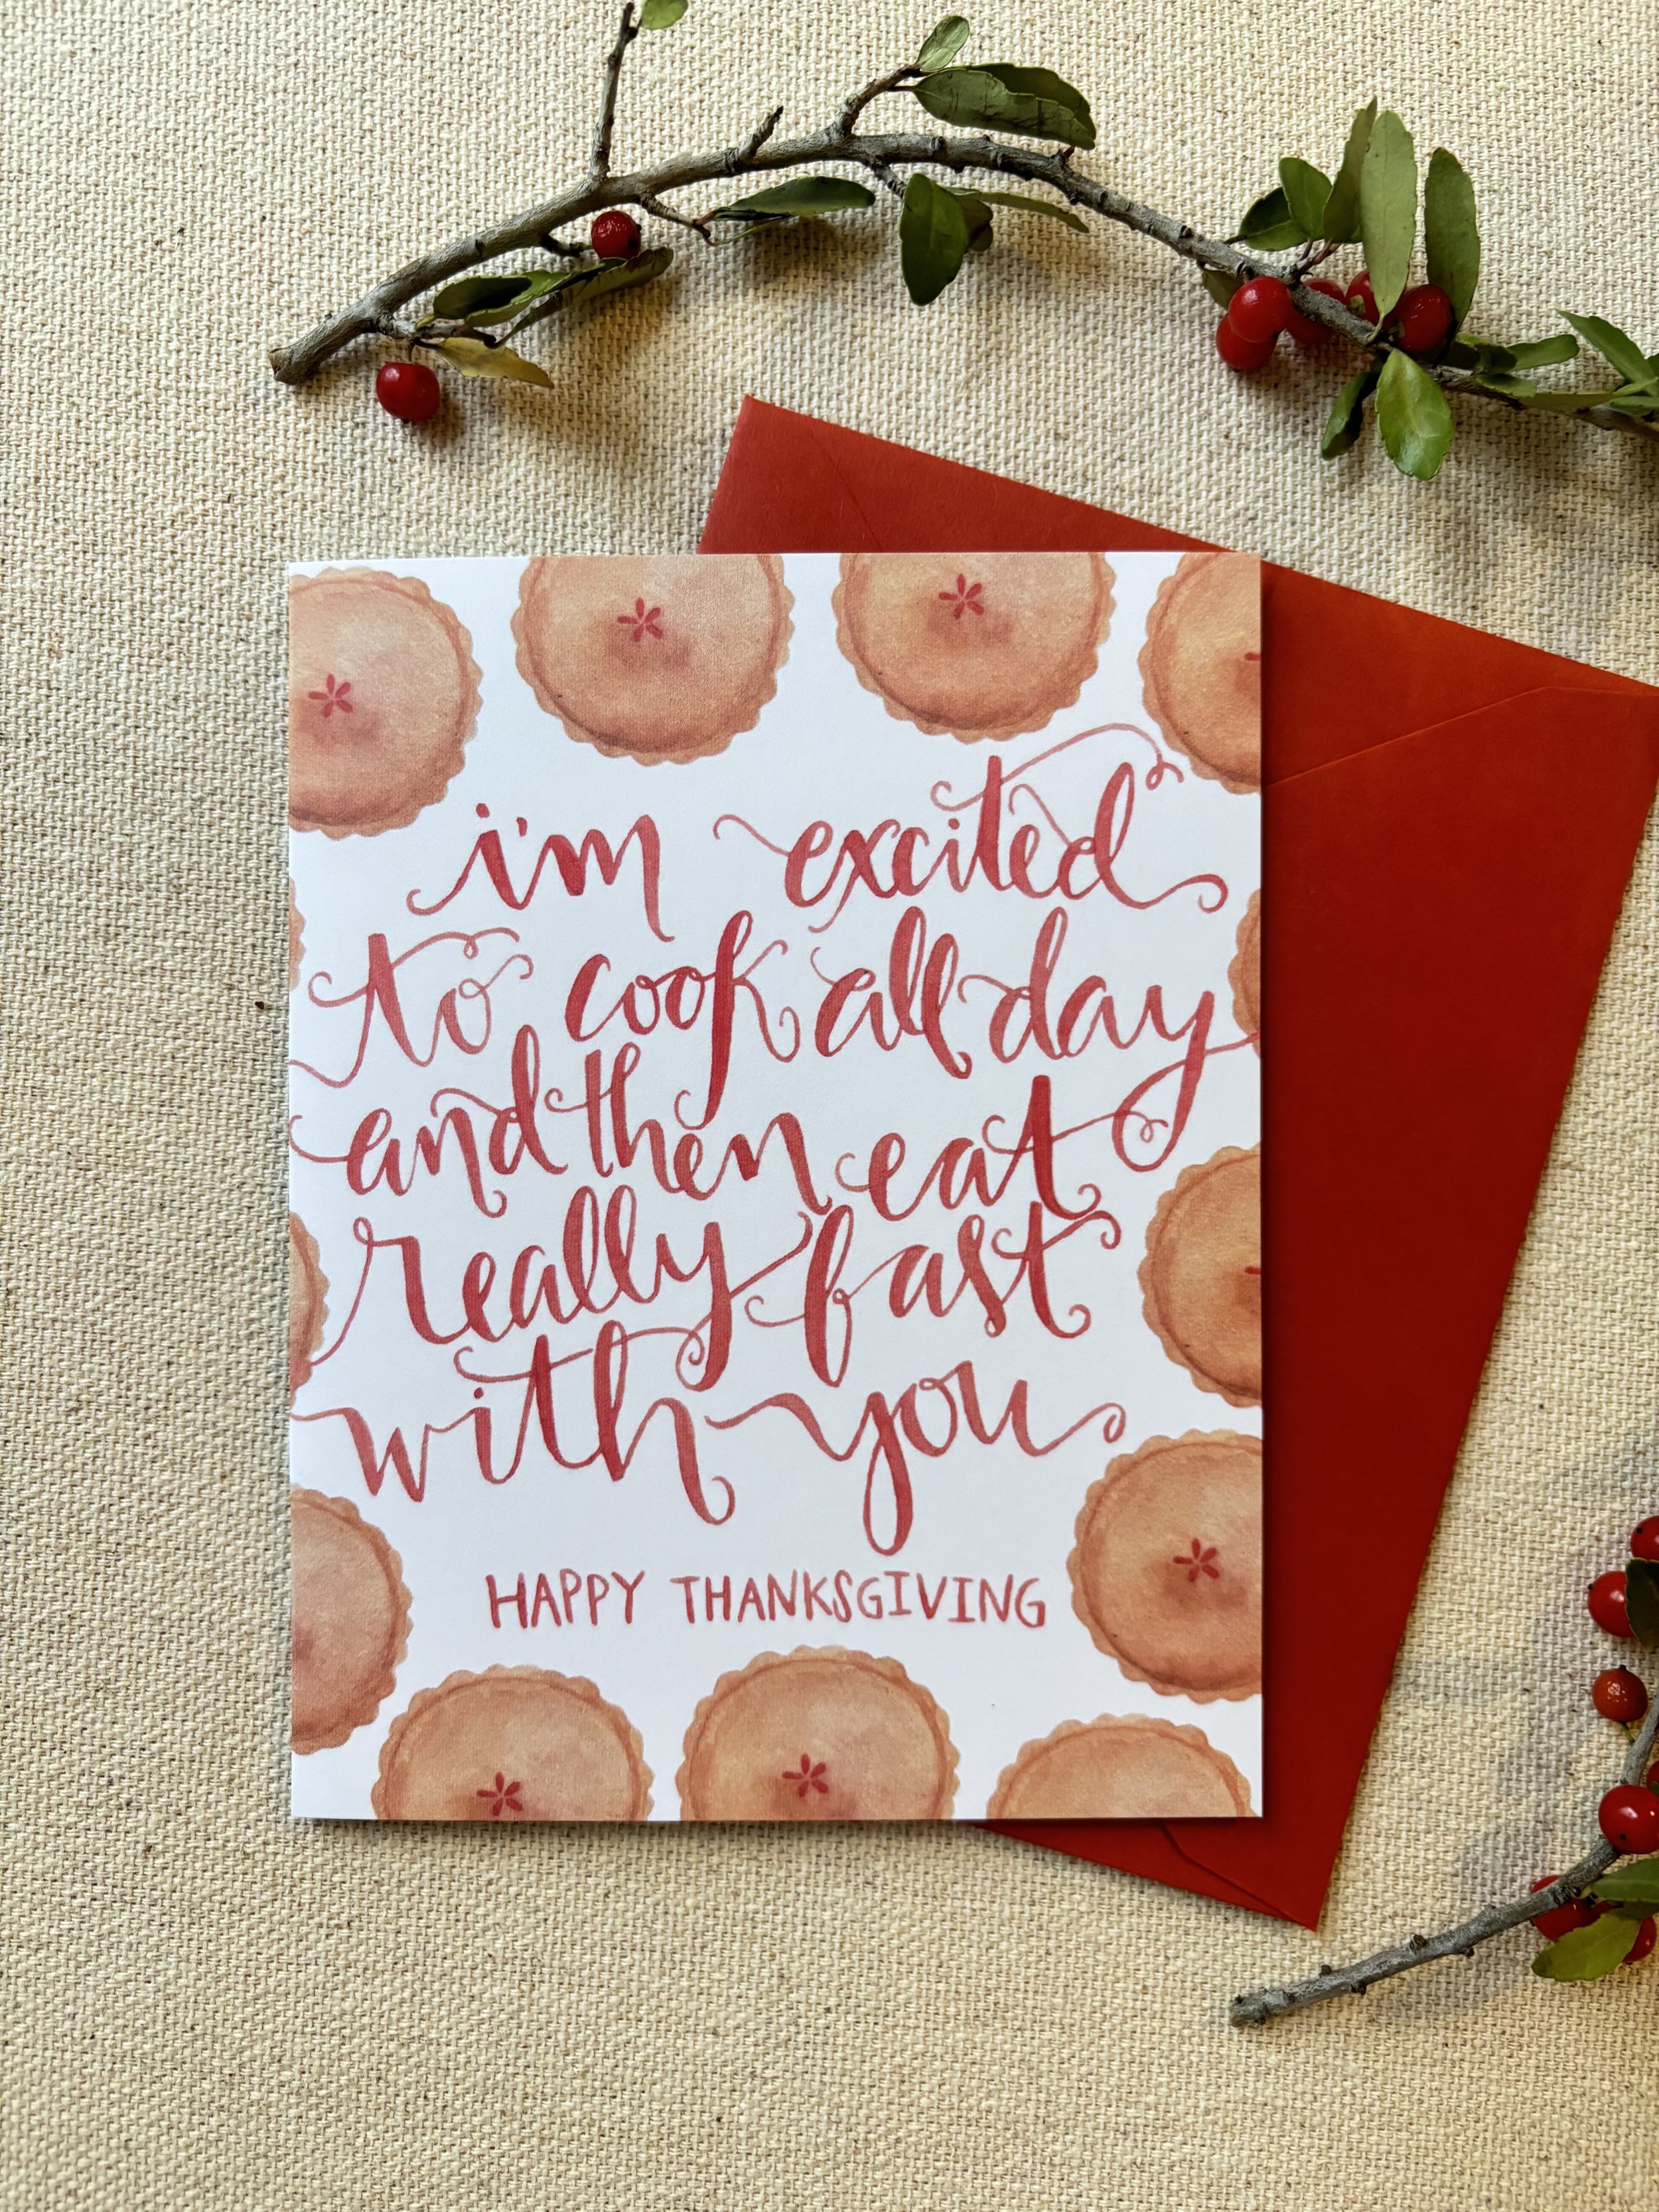 i'm excited
to cook all day
and then eat
really fast
with you
HAPPY THANKSGIVING